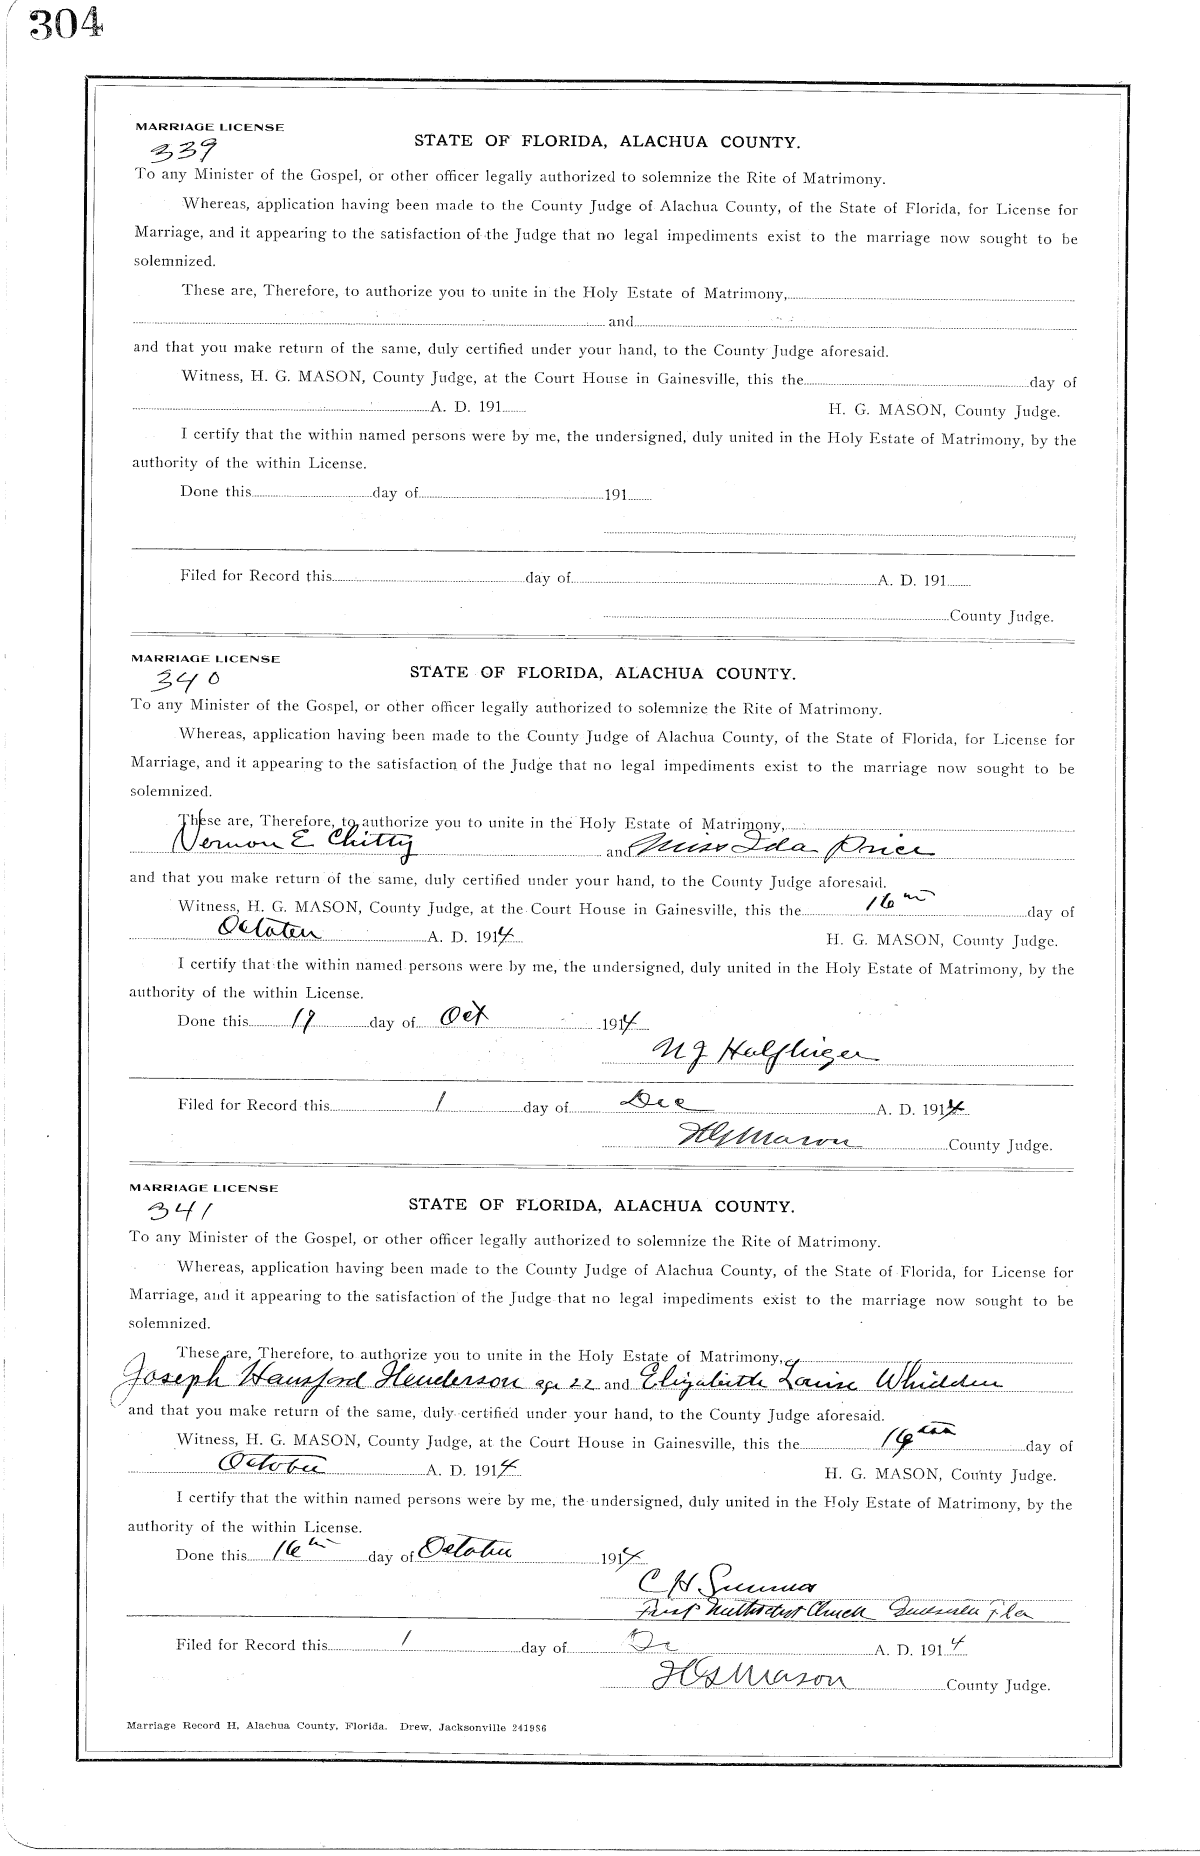 304
MARRIAGE LICENSE
339
STATE OF FLORIDA, ALACHUA COUNTY.
To any Minister of the Gospel, or other officer legally authorized to solemnize the Rite of Matrimony.
Whereas, application having been made to the County Judge of Alachua County, of the State of Florida, for License for
Marriage, and it appearing to the satisfaction of the Judge that no legal impediments exist to the marriage now sought to be
solemnized.
These are, Therefore, to authorize you to unite in the Holy Estate of Matrimony,
and
and that you make return of the same, duly certified under your hand, to the County Judge aforesaid.
Witness, H. G. MASON, County Judge, at the Court House in Gainesville, this the day of
A. D. 191 H. G. MASON, County Judge.
I certify that the within named persons were by me, the undersigned, duly united in the Holy Estate of Matrimony, by the
authority of the within License.
Done this day of 191
Filed for Record this day of A. D. 191
County Judge.
MARRIAGE LICENSE
340
STATE OF FLORIDA, ALACHUA COUNTY.
To any Minister of the Gospel, or other officer legally authorized to solemnize the Rite of Matrimony.
Whereas, application having been made to the County Judge of Alachua County, of the State of Florida, for License for
Marriage, and it appearing to the satisfaction of the Judge that no legal impediments exist to the marriage now sought to be
solemnized.
These are, Therefore, to authorize you to unite in the Holy Estate of Matrimony,
Vernon E Chitty and Miss Ida Price
and that you make return of the same, duly certified under your hand, to the County Judge aforesaid.
Witness, H. G. MASON, County Judge, at the Court House in Gainesville, this the 16th day of
October A. D. 1914 H. G. MASON, County Judge.
I certify that the within named persons were by me, the undersigned, duly united in the Holy Estate of Matrimony, by the
authority of the within License.
Done this day of Oct 1914
Filed for Record this 1 day of Dec A. D. 1914
H G Mason County Judge.
MARRIAGE LICENSE
341
STATE OF FLORIDA, ALACHUA COUNTY.
To any Minister of the Gospel, or other officer legally authorized to solemnize the Rite of Matrimony.
Whereas, application having been made to the County Judge of Alachua County, of the State of Florida, for License for
Marriage, and it appearing to the satisfaction of the Judge that no legal impediments exist to the marriage now sought to be
solemnized.
These are, Therefore, to authorize you to unite in the Holy Estate of Matrimony,
Joseph Hansford Henderson age 22 and Elizabeth Louise Whidden
and that you make return of the same, duly certified under your hand, to the County Judge aforesaid.
Witness, H. G. MASON, County Judge, at the Court House in Gainesville, this the 16th day of
October A. D. 1914 H. G. MASON, County Judge.
I certify that the within named persons were by me, the undersigned, duly united in the Holy Estate of Matrimony, by the
authority of the within License.
Done this 16th day of October 1914
C H Summers
First Methodist Church Gainesville Fla
Filed for Record this 1 day of De A. D. 1914
H G Mason County Judge.
Marriage Record H, Alachua County, Florida. Drew, Jacksonville 241986